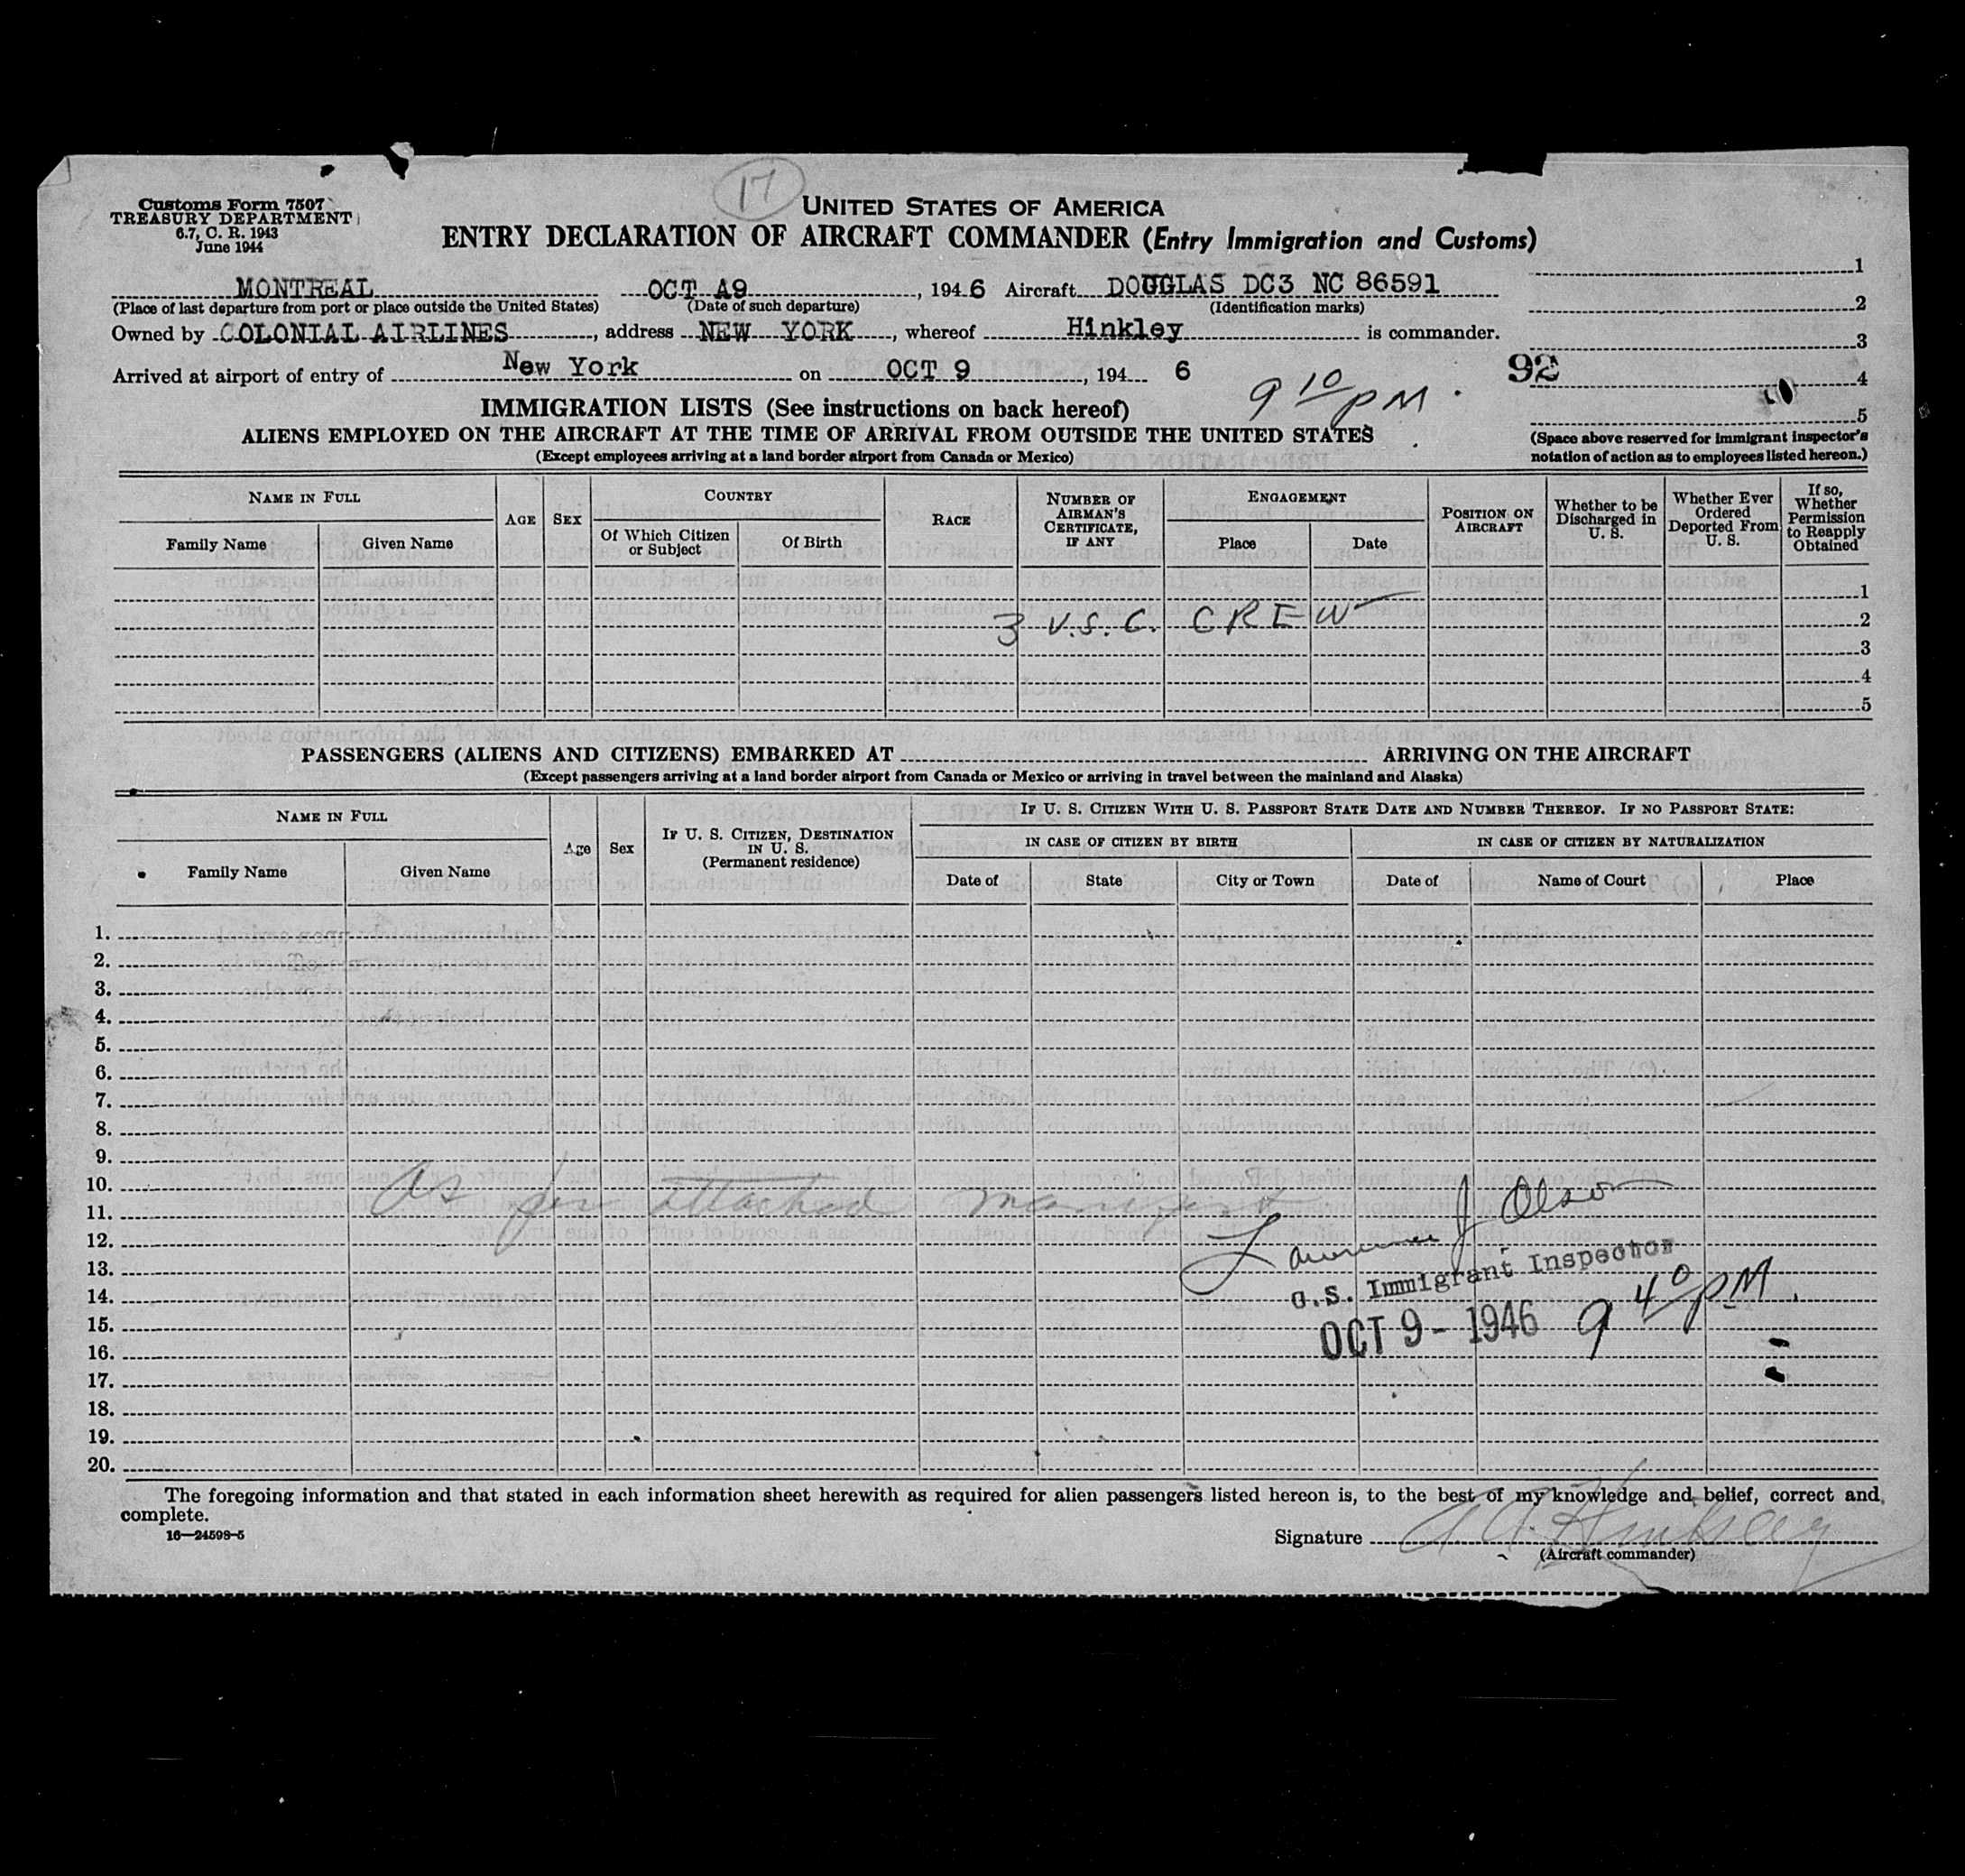 17
Customs Form 7507
TREASURY DEPARTMENT
6.7, C. R. 1943
June 1944
UNITED STATES OF AMERICA
ENTRY DECLARATION OF AIRCRAFT COMMANDER (Entry Immigration and Customs)
MONTREAL OCT A9, 1946 Aircraft DOUGLAS DC3 NC 86591
(Place of last departure from port or place outside the United States) (Date of such departure) (Identification marks)
Owned by COLONIAL AIRLINES, address NEW YORK, whereof Hinkley is commander.
Arrived at airport of entry of New York on OCT 9, 194 6
9 10 PM
92
1
2
3
4
5
(Space above reserved for immigrant inspector's
notation of action as to employees listed hereon.)
IMMIGRATION LISTS (See instructions on back hereof)
ALIENS EMPLOYED ON THE AIRCRAFT AT THE TIME OF ARRIVAL FROM OUTSIDE THE UNITED STATES
(Except employees arriving at a land border airport from Canada or Mexico)
NAME IN FULL
Family Name Given Name
AGE SEX
COUNTRY
Of Which Citizen
or Subject
Of Birth
RACE
NUMBER OF
AIRMAN'S
CERTIFICATE,
IF ANY
ENGAGEMENT
Place Date
POSITION ON
AIRCRAFT
Whether to be
Discharged in
U. S.
Whether Ever
Ordered
Deported From
U. S.
If so,
Whether
Permission
to Reapply
Obtained
1
3 U.S.C. CREW 2
3
4
5
PASSENGERS (ALIENS AND CITIZENS) EMBARKED AT ARRIVING ON THE AIRCRAFT
(Except passengers arriving at a land border airport from Canada or Mexico or arriving in travel between the mainland and Alaska)
NAME IN FULL
Family Name Given Name
Age Sex
IF U. S. CITIZEN, DESTINATION
IN U. S.
(Permanent residence)
IF U. S. CITIZEN WITH U. S. PASSPORT STATE DATE AND NUMBER THEREOF. IF NO PASSPORT STATE:
IN CASE OF CITIZEN BY BIRTH IN CASE OF CITIZEN BY NATURALIZATION
Date of State City or Town Date of Name of Court Place
1.
2.
3.
4.
5.
6.
7.
8.
9.
10.
As per attached manifest
11.
Lawrence J Olson
12.
13.
U.S. Immigrant Inspector
14.
15.
OCT 9 - 1946 9 40 PM.
16.
17.
18.
19.
20.
The foregoing information and that stated in each information sheet herewith as required for alien passengers listed hereon is, to the best of my knowledge and belief, correct and
complete.
16—24598-5
Signature A A. Hinkley
(Aircraft commander)